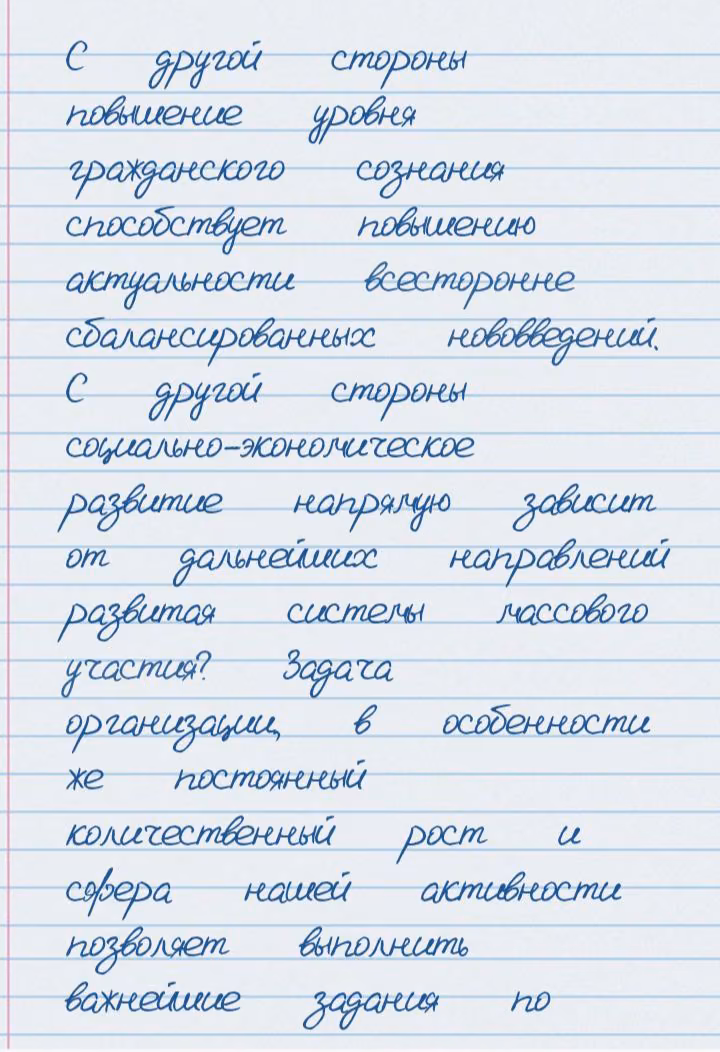 С другой стороны
повышение уровня
гражданского сознания
способствует повышению
актуальности всесторонне
сбалансированных нововведений.
С другой стороны
социально-экономическое
развитие напрямую зависит
от дальнейших направлений
развитая системы массового
участия? Задача
организации, в особенности
же постоянный
количественный рост и
сфера нашей активности
позволяет выполнить
важнейшие задания по